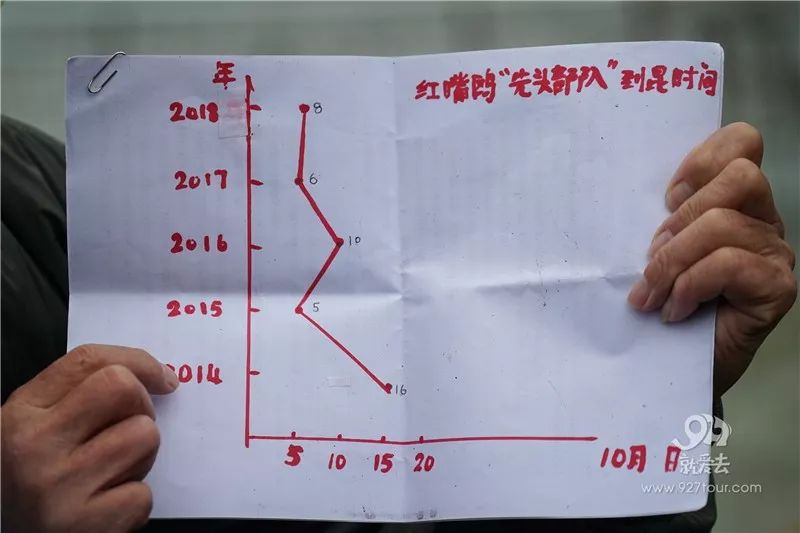 红嘴鸥“先头部队”到昆时间
年
2018 8
2017 6
2016 10
2015 5
2014 16
5 10 15 20 10月 日
927
就爱去
www.927tour.com